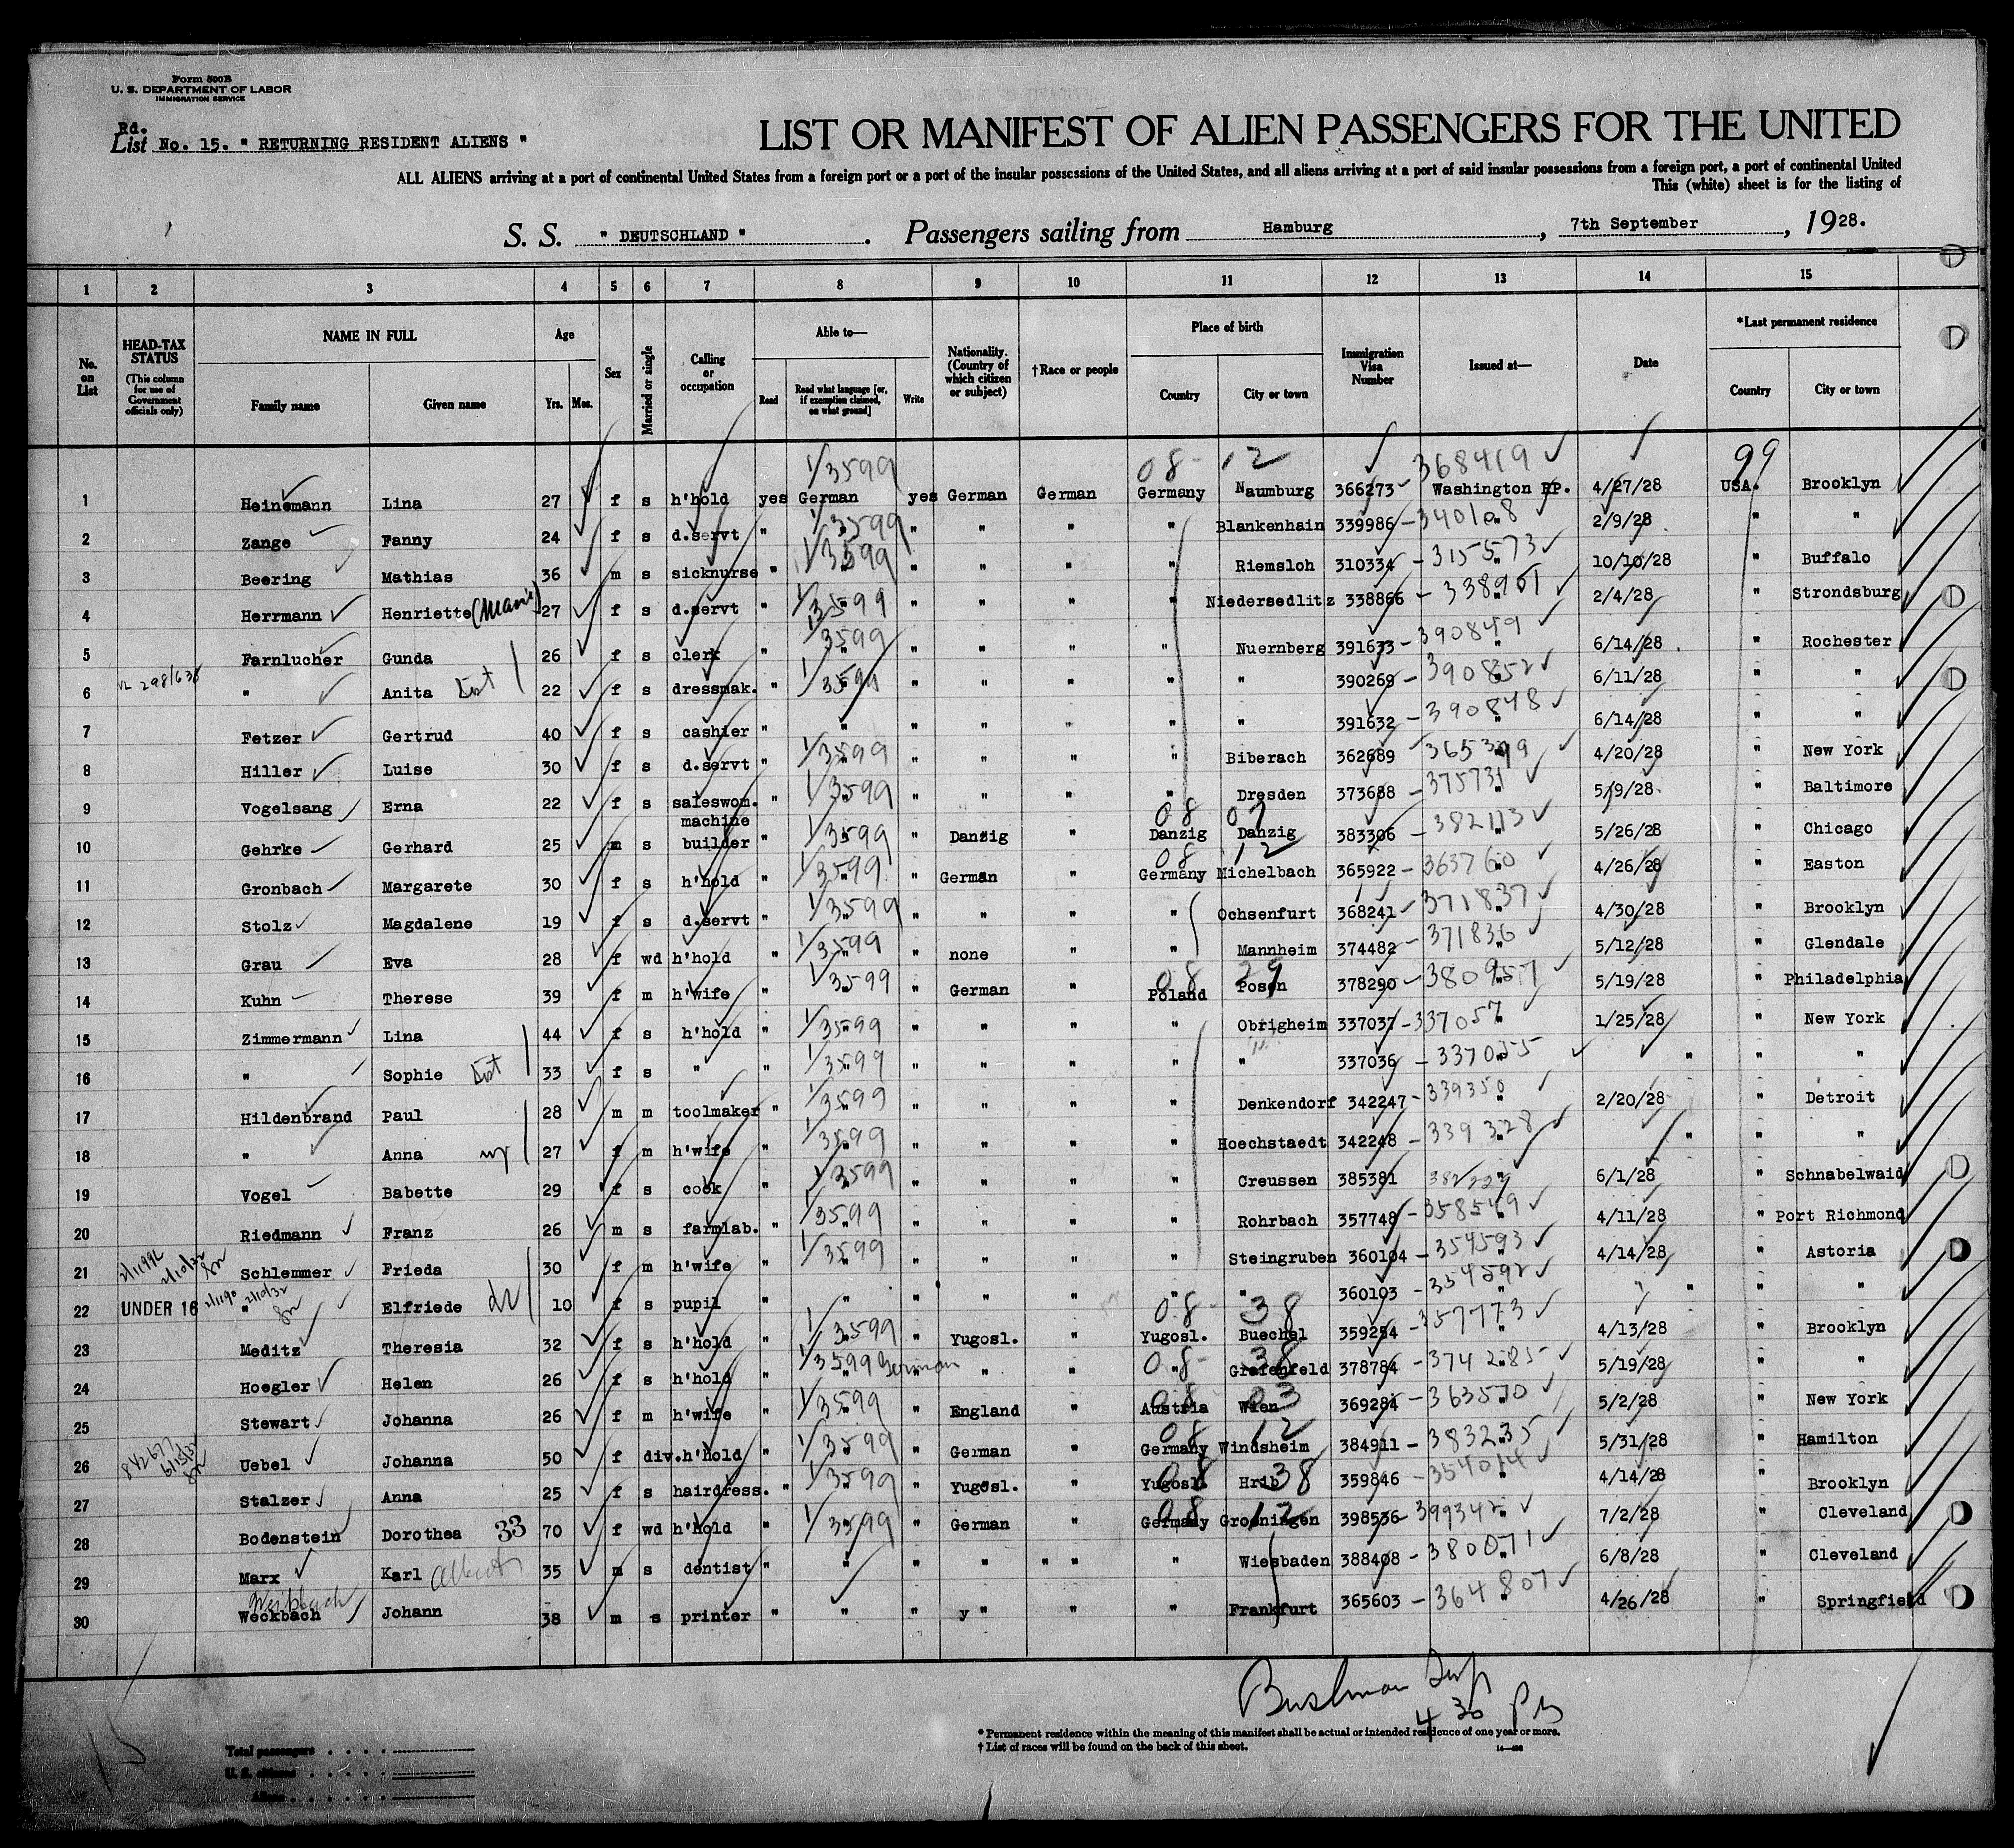 Form 500B
U. S. DEPARTMENT OF LABOR
IMMIGRATION SERVICE
Rd.
List No. 15. " RETURNING RESIDENT ALIENS "
LIST OR MANIFEST OF ALIEN PASSENGERS FOR THE UNITED
ALL ALIENS arriving at a port of continental United States from a foreign port or a port of the insular possessions of the United States, and all aliens arriving at a port of said insular possessions from a foreign port, a port of continental United
This (white) sheet is for the listing of
S. S. " DEUTSCHLAND ". Passengers sailing from Hamburg, 7th September, 1928.
1 2 3 4 5 6 7 8 9 10 11 12 13 14 15
No. on List
HEAD-TAX STATUS (This column for use of Government officials only)
NAME IN FULL Family name Given name
Age Yrs. Mos.
Sex
Married or single
Calling or occupation
Able to— Read Read what language [or, if exemption claimed, on what ground] Write
Nationality. (Country of which citizen or subject)
†Race or people
Place of birth Country City or town
Immigration Visa Number
Issued at—
Date
*Last permanent residence Country City or town
1/3599 08-12 368419 99
1 Heinemann Lina 27 f s h'hold yes German yes German German Germany Naumburg 366273 Washington PP. 4/27/28 USA. Brooklyn
2 Zange Fanny 24 f s d.servt " 1/3599 " " " " Blankenhain 339986 - 340108 2/9/28 " "
3 Beering Mathias 36 m s sicknurse " 1/3599 " " " " Riemsloh 310334 - 315573 10/10/28 " Buffalo
4 Herrmann Henriette (Marie) 27 f s d.servt " 1/3599 " " " " Niedersedlitz 338866 - 338961 2/4/28 " Strondsburg
5 Farnlucher Gunda 26 f s clerk " 1/3599 " " " " Nuernberg 391633 - 390849 6/14/28 " Rochester
6 " Anita 22 f s dressmak. " 1/3599 " " " " " 390269 - 390852 6/11/28 " "
7 Fetzer Gertrud 40 f s cashier " " " " " " " 391632 - 390848 6/14/28 " "
8 Hiller Luise 30 f s d.servt " 1/3599 " " " " Biberach 362689 365399 4/20/28 " New York
9 Vogelsang Erna 22 f s saleswom. " 1/3599 " " " " Dresden 373688 - 375731 5/9/28 " Baltimore
08 07
10 Gehrke Gerhard 25 m s machine builder " 1/3599 " Danzig " Danzig Danzig 383306 - 382113 5/26/28 " Chicago
08 12
11 Gronbach Margarete 30 f s h'hold " 1/3599 " German " Germany Michelbach 365922 - 363760 4/26/28 " Easton
12 Stolz Magdalene 19 f s d.servt " 1/3599 " " " " Ochsenfurt 368241 - 371837 4/30/28 " Brooklyn
13 Grau Eva 28 f wd h'hold " 1/3599 " none " " Mannheim 374482 - 371836 5/12/28 " Glendale
08 29
14 Kuhn Therese 39 f m h'wife " 1/3599 " German " Poland Posen 378290 - 380957 5/19/28 " Philadelphia
15 Zimmermann Lina 44 f s h'hold " 1/3599 " " " " Obrigheim 337037 - 337057 1/25/28 " New York
16 " Sophie 33 f s " " 1/3599 " " " " " 337036 - 337055 " " "
17 Hildenbrand Paul 28 m m toolmaker " 1/3599 " " " " Denkendorf 342247 - 339350 2/20/28 " Detroit
18 " Anna 27 f m h'wife " 1/3599 " " " " Hoechstaedt 342248 - 339328 " " "
19 Vogel Babette 29 f s cook " 1/3599 " " " " Creussen 385381 6/1/28 " Schnabelwaid
20 Riedmann Franz 26 m s farmlab. " 1/3599 " " " " Rohrbach 357748 - 358549 4/11/28 " Port Richmond
21 Schlemmer Frieda 30 f m h'wife " 1/3599 " " " " Steingruben 360104 - 354593 4/14/28 " Astoria
22 UNDER 16 " Elfriede 10 f s pupil " " " " " " " 360103 - 354592 " " "
08- 38
23 Meditz Theresia 32 f s h'hold " 1/3599 " Yugosl. " Yugosl. Buechel 359254 - 357773 4/13/28 " Brooklyn
08- 38
24 Hoegler Helen 26 f s h'hold " 1/3599 German " " " " Grafenfeld 378784 - 374285 5/19/28 " "
08 03
25 Stewart Johanna 26 f m h'wife " 1/3599 " England " Austria Wien 369284 - 363570 5/2/28 " New York
08 12
26 Uebel Johanna 50 f div. h'hold " 1/3599 " German " Germany Windsheim 384911 - 383235 5/31/28 " Hamilton
08 38
27 Stalzer Anna 25 f s hairdress. " 1/3599 " Yugosl. " Yugosl. Hrib 359846 - 354014 4/14/28 " Brooklyn
08 12
28 Bodenstein Dorothea 33 70 f wd h'hold " 1/3599 " German " Germany Groeningen 398536 - 399342 7/2/28 " Cleveland
29 Marx Karl Albert 35 m s dentist " " " " " " " Wiesbaden 388408 - 380071 6/8/28 " Cleveland
30 Weckbach Johann 38 m s printer " " " y " " " Frankfurt 365603 - 364807 4/26/28 " Springfield
4 30 PM
* Permanent residence within the meaning of this manifest shall be actual or intended residence of one year or more.
† List of races will be found on the back of this sheet.
Total passengers
U. S. citizens
Aliens